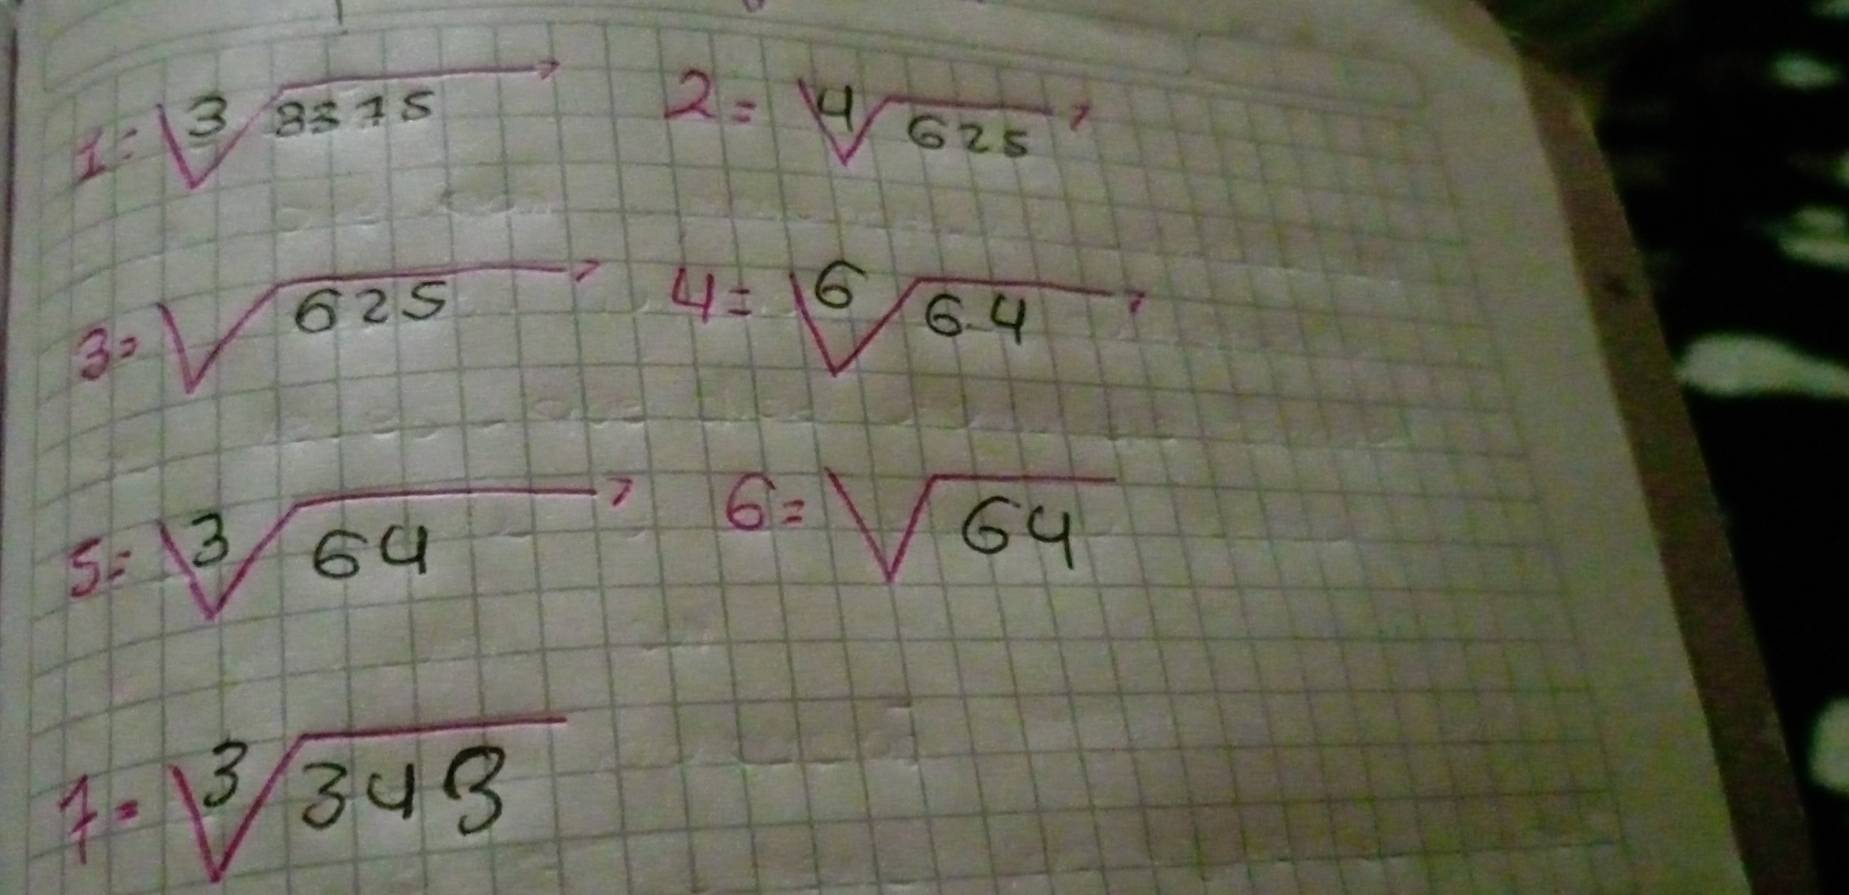 1= ∛3375 2= ∜625
3= √625 4= ⁶√64
5= ∛64 6= √64
7= ∛343